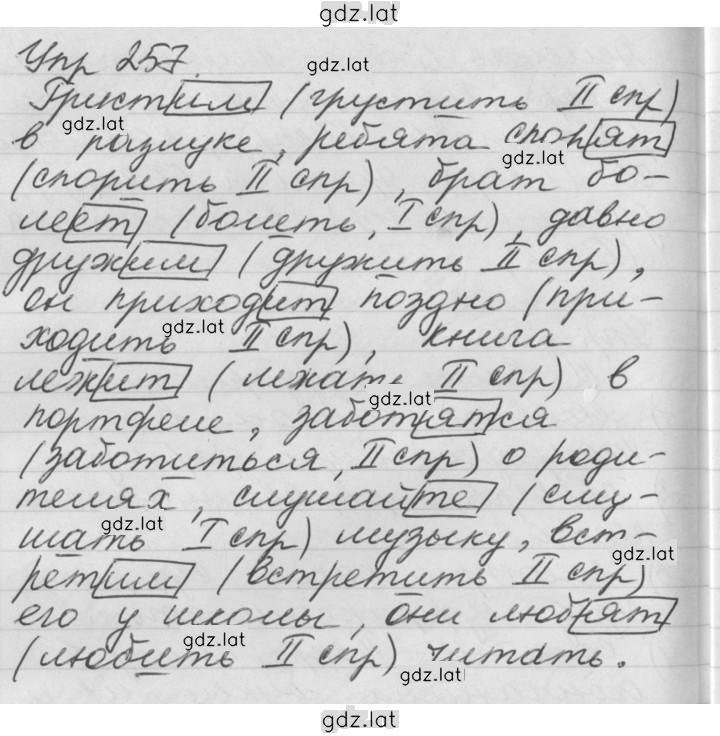 gdz.lat
Упр 257.
gdz.lat
Грустим (грустить II спр)
gdz.lat
в разлуке, ребята спорят
gdz.lat
(спорить II спр), брат бо-
леет (болеть, I спр), давно
дружим (дружить II спр),
он приходит поздно (при-
gdz.lat
ходить II спр), книга
лежит (лежать II спр) в
gdz.lat
портфеле, заботятся
(заботиться, II спр) о роди-
телях, слушайте (слу-
gdz.lat
шать I спр) музыку, вст-
gdz.lat
ретим (встретить II спр)
его у школы, они любят
gdz.lat
(любить II спр) читать.
gdz.lat
gdz.lat